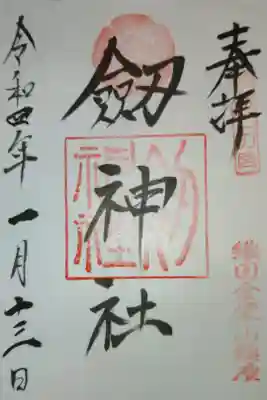 奉拝
劔神社
令和四年一月十三日